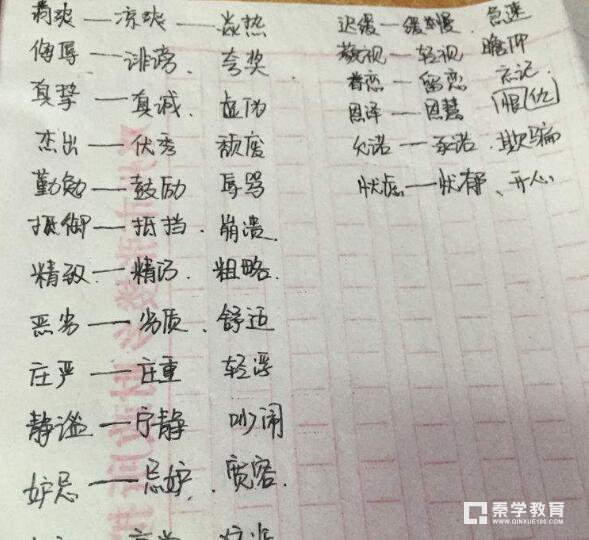 清爽——凉爽——炎热
侮辱——诽谤、夸奖
真挚——真诚、虚伪
杰出——优秀 颓废
勤勉——鼓励 辱骂
抵御——抵挡、崩溃
精致——精巧、粗略
恶劣——劣质、舒适
庄严——庄重 轻浮
静谧——宁静 吵闹
妒忌——忌妒、宽容
迟缓——缓慢、急速
藐视——轻视 瞻仰
眷恋——留恋 忘记
恩泽——恩惠 仇
允诺——承诺、欺骗
忧虑——忧郁、开心
秦学教育
WWW.QINXUE100.COM